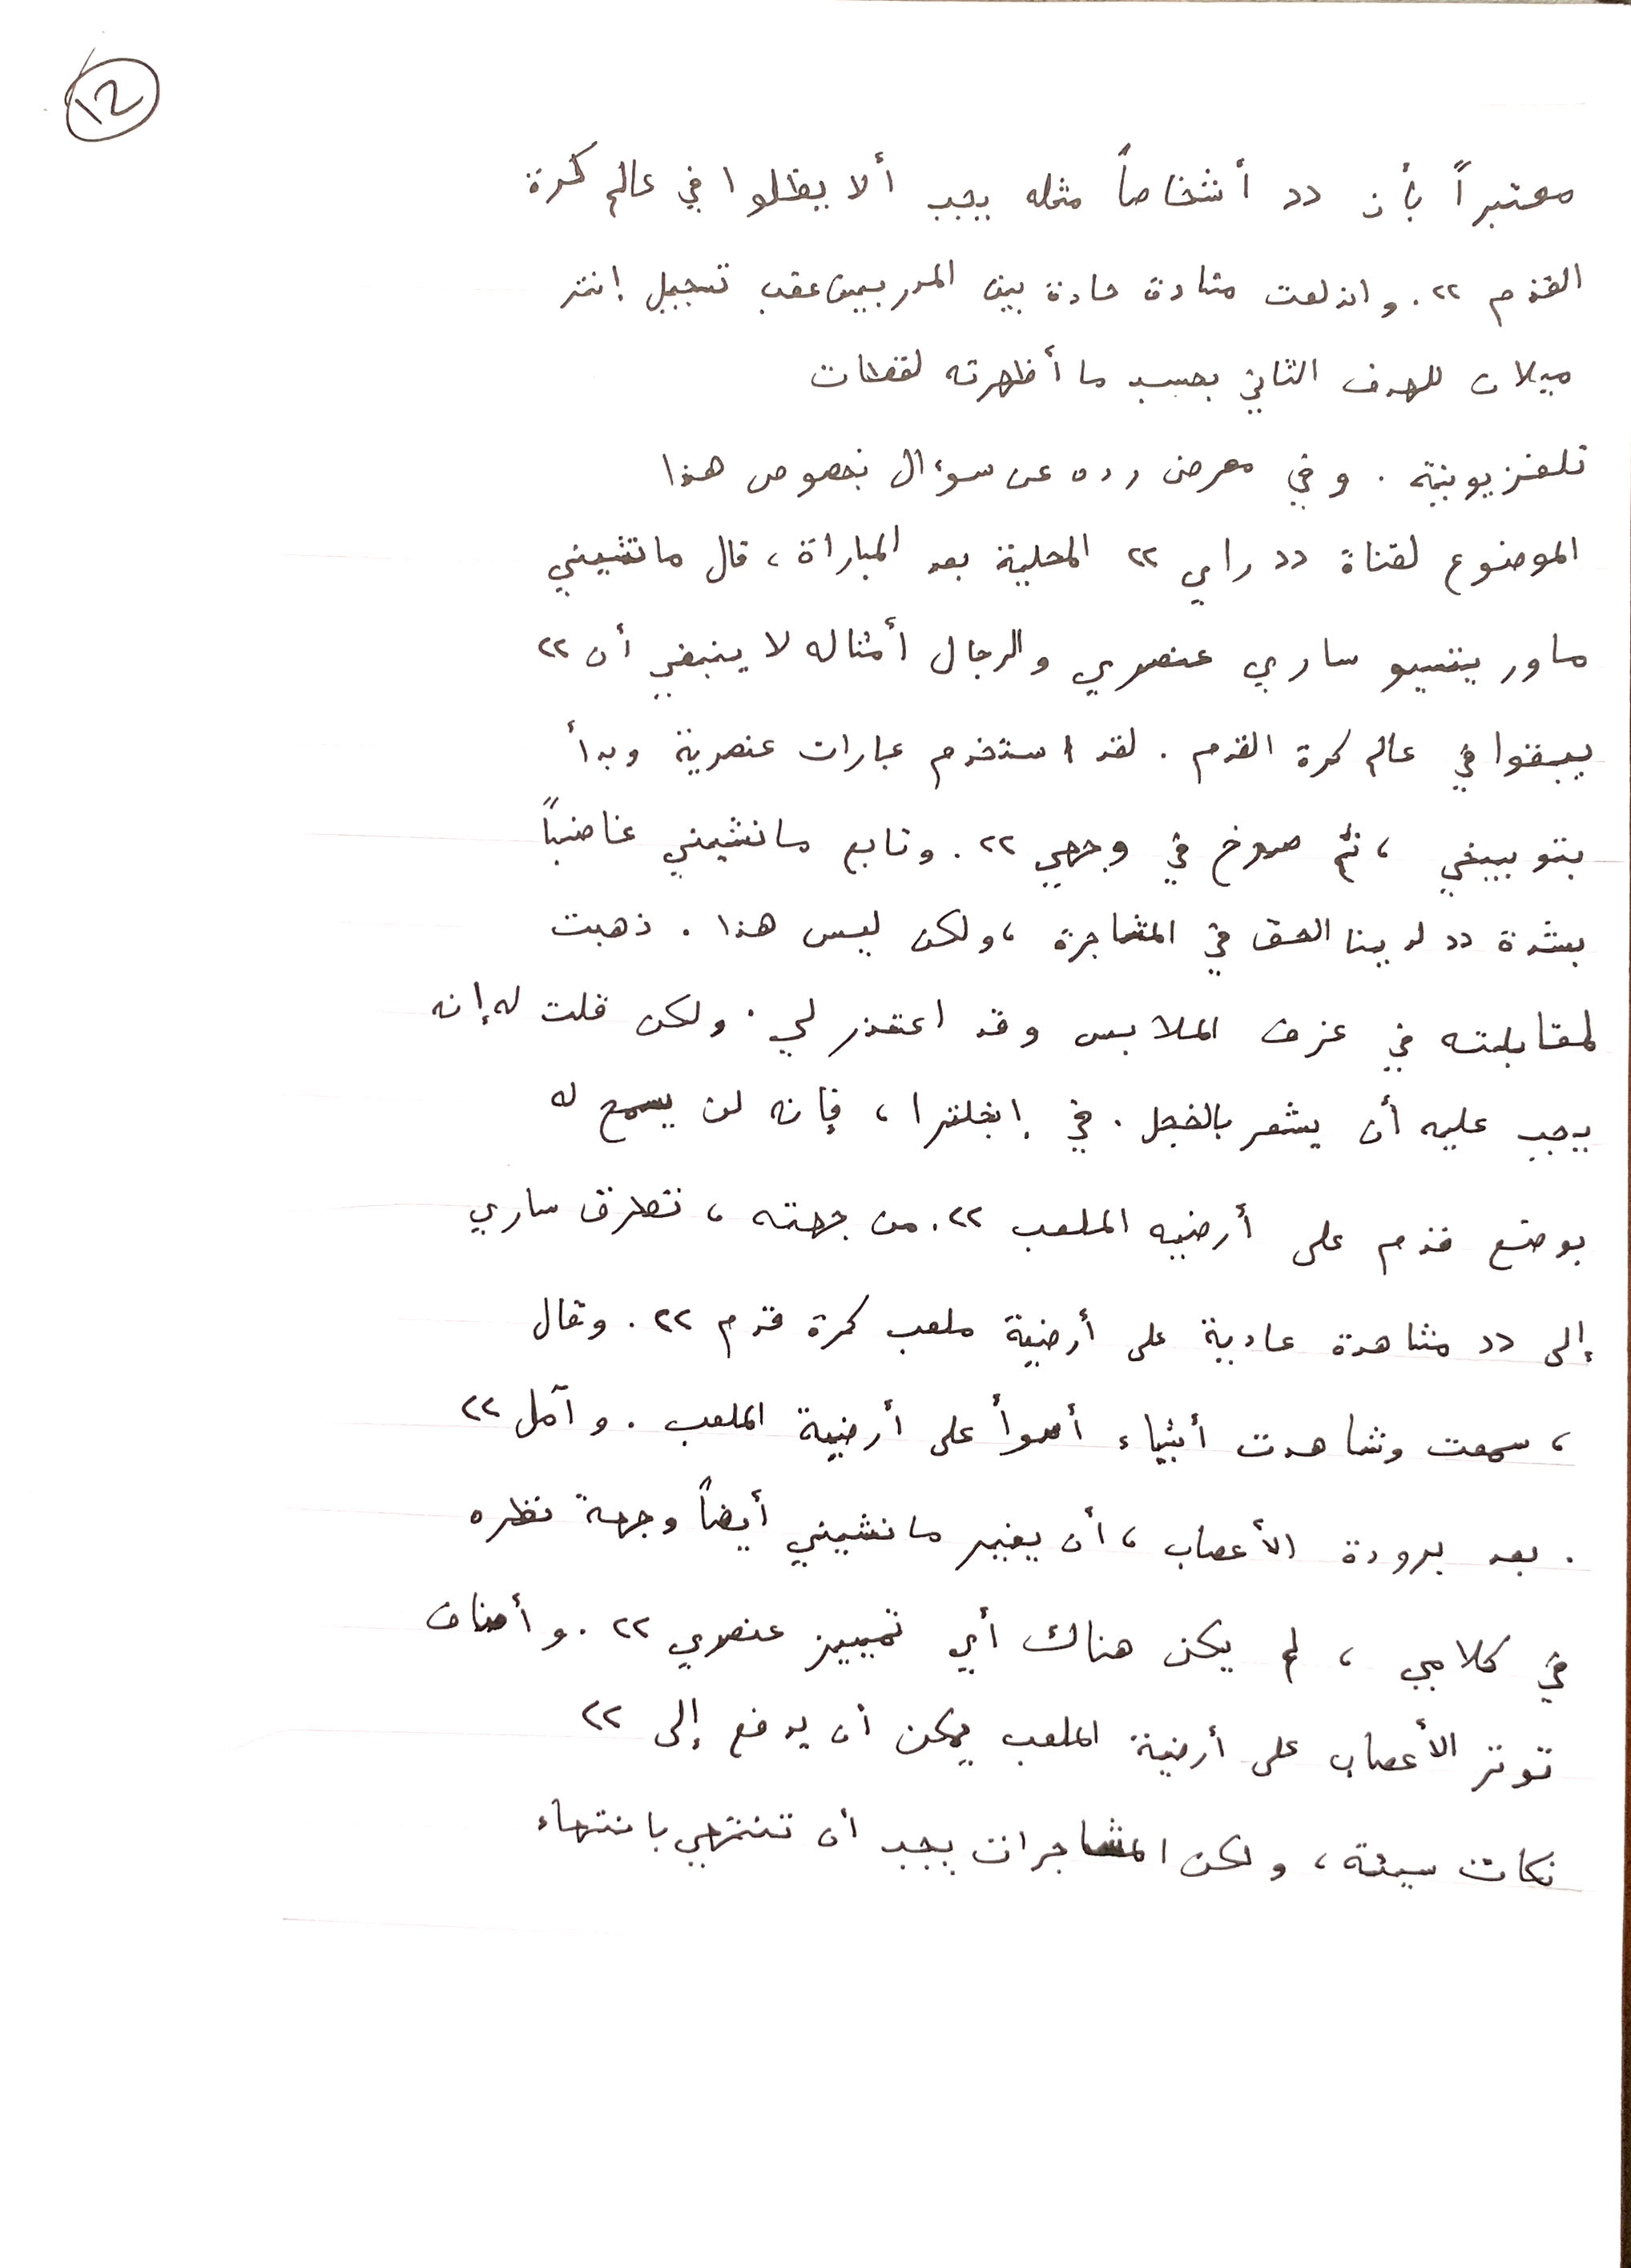 ١٢
معتبراً بأن "أشخاصاً مثله يجب ألا يظلوا في عالم كرة
القدم". واندلعت مشادة حادة بين المدربين عقب تسجيل إنتر
ميلان للهدف الثاني بحسب ما أظهرته لقطات
تلفزيونية. وفي معرض رده عن سؤال بخصوص هذا
الموضوع لقناة "راي" المحلية بعد المباراة، قال مانشيني
ماوريتسيو ساري عنصري والرجال أمثاله لا ينبغي أن "
يبقوا في عالم كرة القدم. لقد استخدم عبارات عنصرية وبدأ
بتوبيخي، ثم صرخ في وجهي". وتابع مانشيني غاضباً
بشدة "لدينا الحق في المشاجرة، ولكن ليس هذا. ذهبت
لمقابلته في غرف الملابس وقد اعتذر لي. ولكن قلت له إنه
يجب عليه أن يشعر بالخجل. في إنجلترا، فإنه لن يسمح له
بوضع قدم على أرضيه الملعب". من جهته، تطرق ساري
إلى "مشاهدة عادية على أرضية ملعب كرة قدم". وقال
، سمعت وشاهدت أشياء أسوأ على أرضية الملعب. وآمل "
. بعد برودة الأعصاب، أن يغير مانشيني أيضاً وجهة نظره
في كلامي، لم يكن هناك أي تمييز عنصري". وأضاف
توتر الأعصاب على أرضية الملعب يمكن أن يدفع إلى "
نكات سيئة، ولكن المشاجرات يجب أن تنتهي بانتهاء